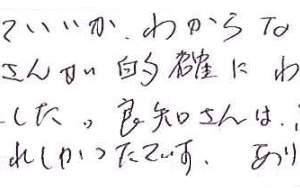 ていいか、わからな
さんが的確にわ
した。良知さんは、
れしかったです。あり